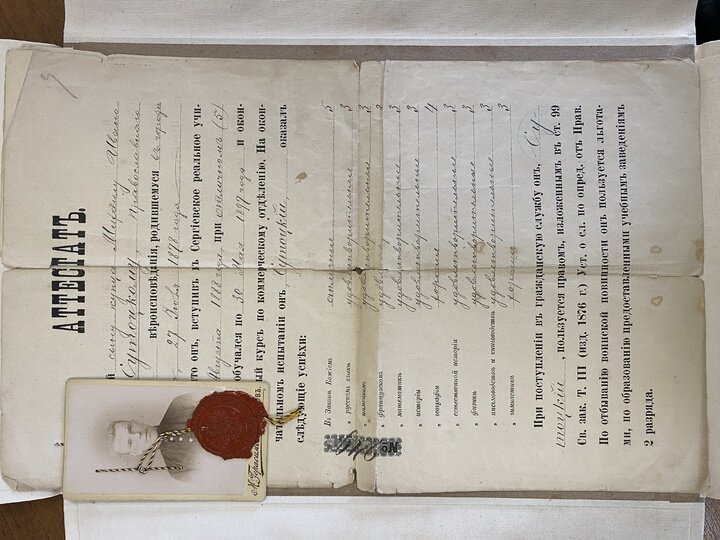 АТТЕСТАТЪ.
сыну купца Михаилу Ивано
Сутоцкому Православнаго
вѣроисповѣданія, родившемуся въ городѣ
27 Июля
то онъ, вступивъ въ Сергіевское реальное учи-
Августа 1888 года, при отличномъ (5)
обучался по 30 Мая 1897 года и окон-
ый курсъ по коммерческому отдѣленію. На окон-
чательномъ испытаніи онъ, Сутоцкій, оказалъ
слѣдующіе успѣхи:
Въ Законѣ Божіемъ отличные 5
„ русскомъ языкѣ удовлетворительные 3
„ нѣмецкомъ удовлетворительные 3
„ французскомъ
„ математикѣ удовлетворительные 3
„ исторіи удовлетворительные 3
„ географіи хорошіе 4
„ естественной исторіи удовлетворительные 3
„ физикѣ удовлетворительные 3
„ удовлетворительные 3
При поступленіи въ гражданскую службу онъ, Су-
тоцкій, пользуется правомъ, изложеннымъ въ ст. 99
Св. зак. Т. III (изд. 1876 г.) Уст. о сл. по опред. отъ Прав.
По отбыванію воинской повинности онъ пользуется льгота-
ми, по образованію предоставленными учебнымъ заведеніямъ
2 разряда.
№